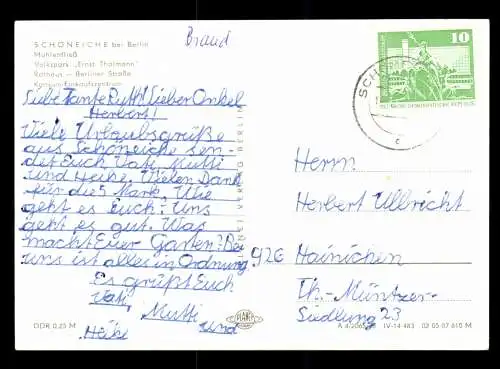 Brand
SCHÖNEICHE bei Berlin
Mühlenfließ
Volkspark „Ernst Thälmann"
Rathaus – Berliner Straße
Konsum-Einkaufszentrum
Liebe Tante Ruth! Lieber Onkel
Herbert!
Viele Urlaubsgrüße
aus Schöneiche sen-
det Euch Vati, Mutti
und Heike. Vielen Dank
für die 5 Mark. Wie
geht es Euch? Uns
geht es gut. Was
macht Euer Garten? Bei
uns ist alles in Ordnung
Es grüßt Euch
Vati, Mutti und
Heike
10
DEUTSCHE DEMOKRATISCHE REPUBLIK
SCHÖNEICHE
c
Herrn
Herbert Ullbricht
926 Hainichen
Th.-Müntzer-
Siedlung 23
DDR 0,25 M
IV-14-483 02 05 07 610 M